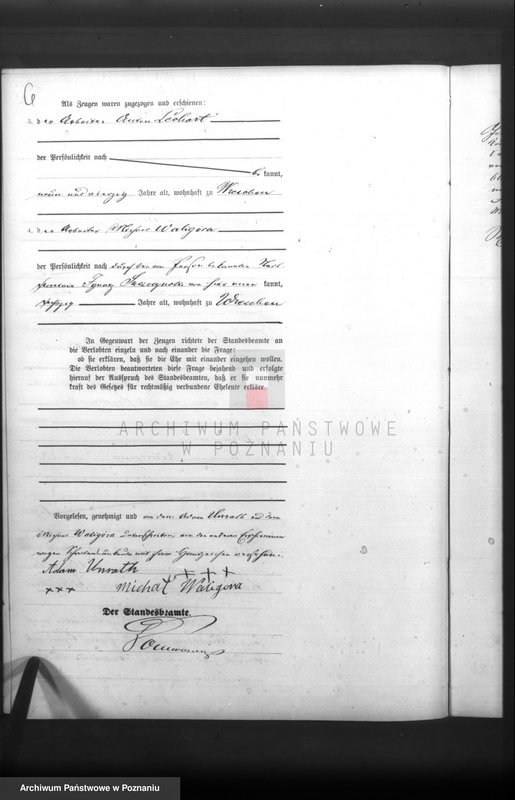 6
Als Zeugen waren zugezogen und erschienen:
3. der Arbeiter Anton
der Persönlichkeit nach
be kannt,
neun und vierzig Jahre alt, wohnhaft zu Wreschen
4. der Arbeiter Waligóra
der Persönlichkeit nach durch den von Person bekannten
Ignatz von hier kannt,
sechszig Jahre alt, wohnhaft zu Wreschen
In Gegenwart der Zeugen richtete der Standesbeamte an
die Verlobten einzeln und nach einander die Frage:
ob sie erklären, daß sie die Ehe mit einander eingehen wollen.
Die Verlobten beantworteten diese Frage bejahend und erfolgte
hierauf der Ausspruch des Standesbeamten, daß er sie nunmehr
kraft des Gesetzes für rechtmäßig verbundene Eheleute erkläre.
ARCHIWUM PAŃSTWOWE
W POZNANIU
Vorgelesen, genehmigt und von dem Adam Unrath und dem
Waligóra unterschrieben, von den anderen Erschienenen
wegen Schreibensunkunde mit ihrem Handzeichen versehen.
Adam Unrath
+++ + + + +
Michał Waligora
Der Standesbeamte.
Archiwum Państwowe w Poznaniu